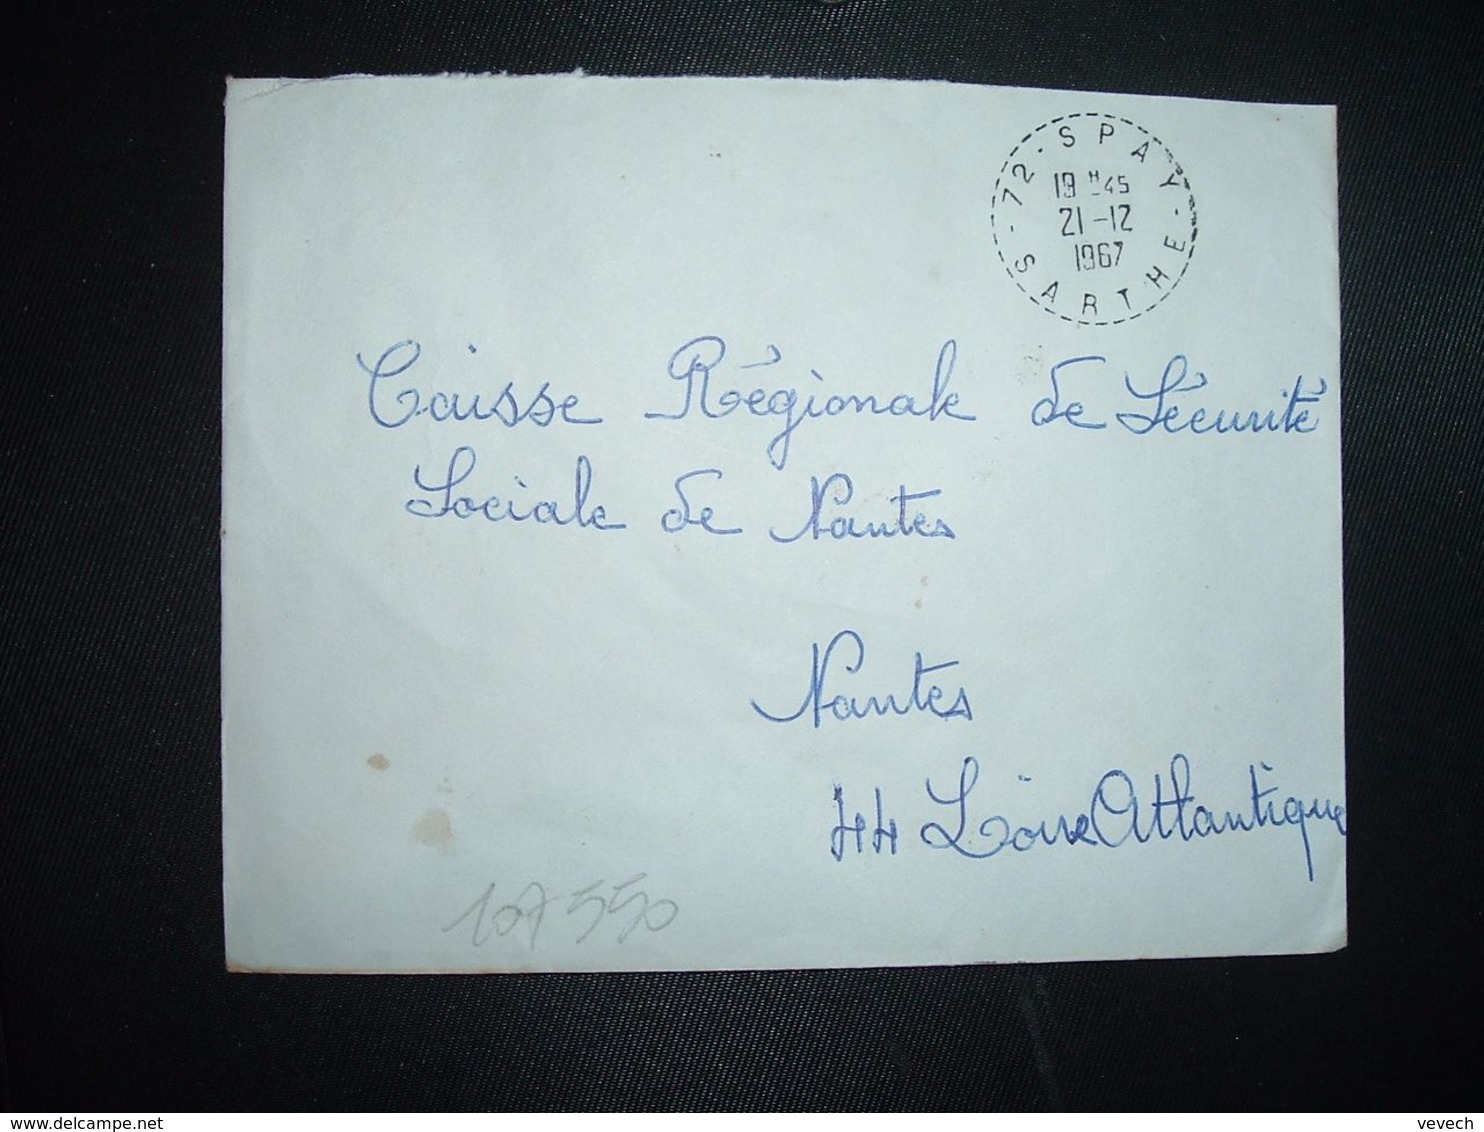 72 - SPAY -
19 H 45
21 - 12
1967
SARTHE
Caisse Régionale de Sécurité
Sociale de Nantes
Nantes
44 Loire Atlantique
107550
delcampe.net
vevech